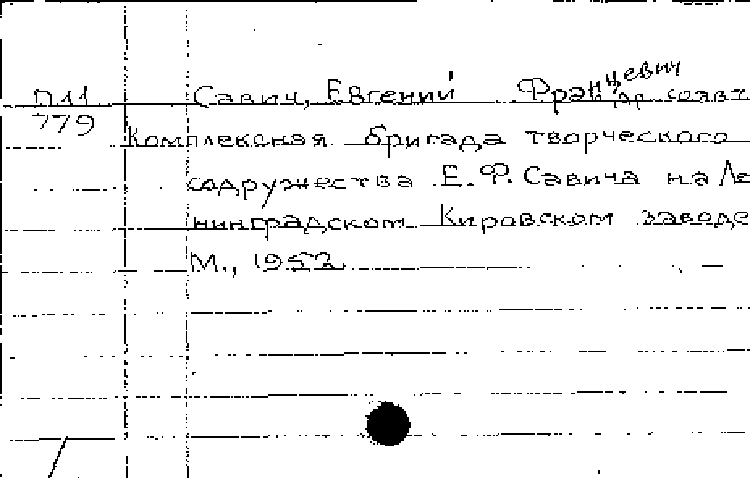 П11
779
Савич, Евгений Францевич
Комплексная бригада творческого
содружества Е.Ф. Савича на Ле
нинградском Кировском заводе
М., 1952